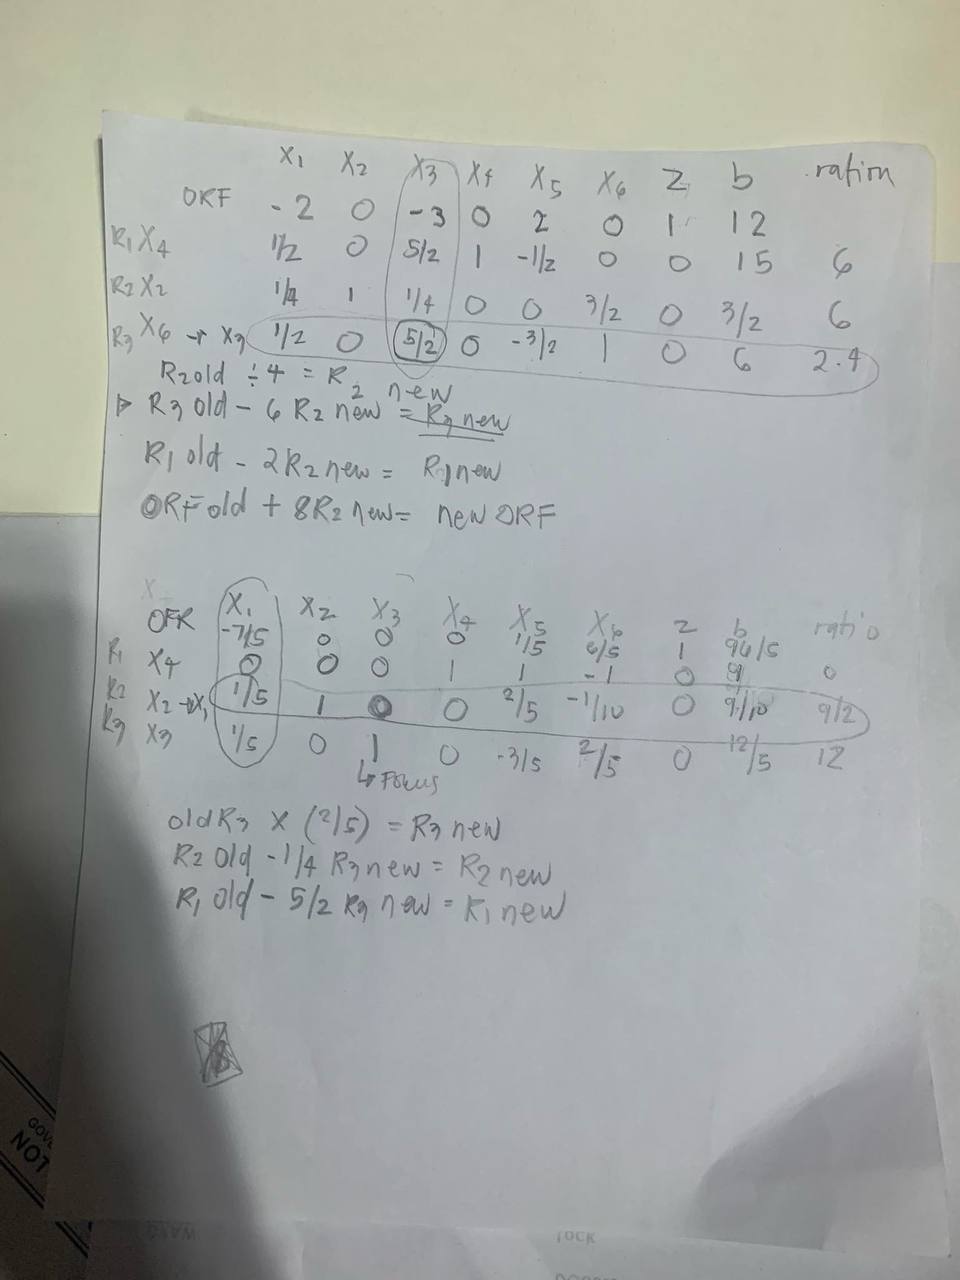 X1 X2 X3 X4 X5 X6 Z b ration
ORF -2 0 -3 0 2 0 1 12
R1 X4 1/2 0 5/2 1 -1/2 0 0 15 6
R2 X2 1/4 1 1/4 0 0 3/2 0 3/2 6
R3 X6 → X3 1/2 0 5/2 0 -3/2 1 0 6 2.4
R2old ÷4 = R2 new
R3 old - 6 R2 new = R3 new
R1 old - 2R2 new = R1 new
ORF old + 8R2 new = new ORF
X1 X2 X3 X4 X5 X6 Z b ratio
OFR -7/5 0 0 0 1/5 6/5 1 96/5
R1 X4 0 0 0 1 1 -1 0 9 0
R2 X2 → X1 1/5 1 0 0 2/5 -1/10 0 9/10 9/2
R3 X3 1/5 0 1 0 -3/5 2/5 0 12/5 12
↳ Focus
old R3 X (2/5) = R3 new
R2 old - 1/4 R3 new = R2 new
R1 old - 5/2 R3 new = R1 new
NOT